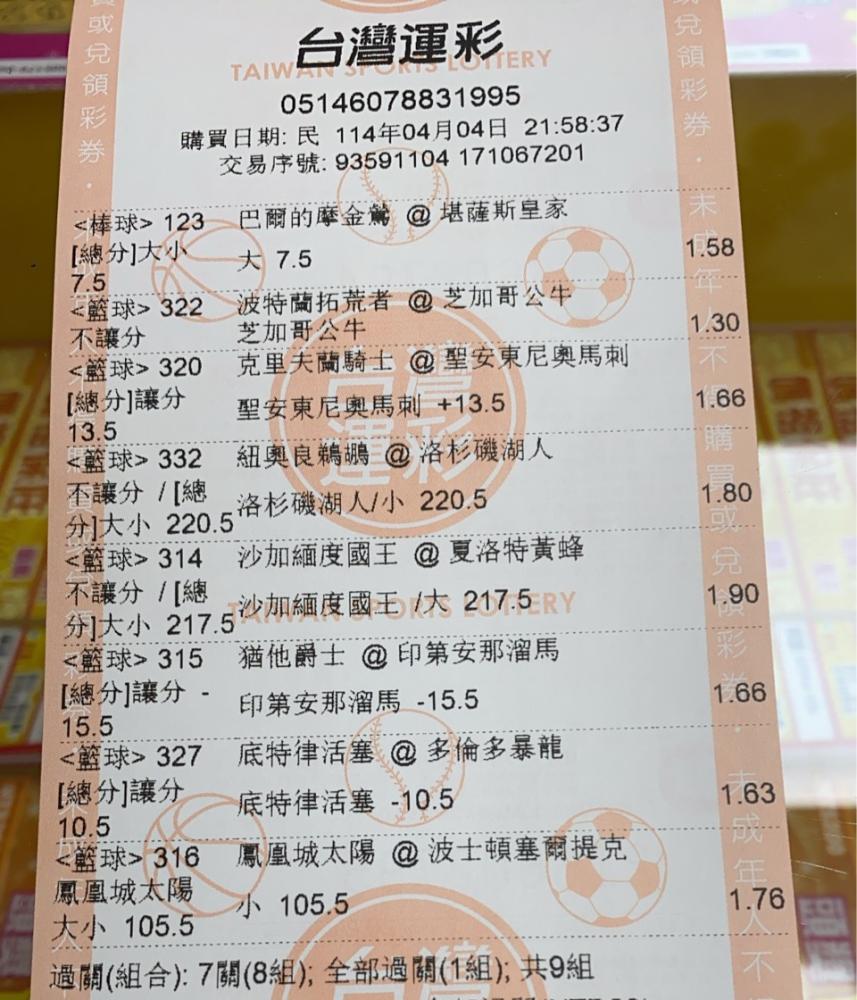 台灣運彩
TAIWAN SPORTS LOTTERY
05146078831995
購買日期: 民 114年04月04日 21:58:37
交易序號: 93591104 171067201
<棒球> 123 巴爾的摩金鶯 @ 堪薩斯皇家
[總分]大小 大 7.5 1.58
7.5
<籃球> 322 波特蘭拓荒者 @ 芝加哥公牛
不讓分 芝加哥公牛 1.30
<籃球> 320 克里夫蘭騎士 @ 聖安東尼奧馬刺
[總分]讓分 聖安東尼奧馬刺 +13.5 1.66
13.5
<籃球> 332 紐奧良鵜鶘 @ 洛杉磯湖人
不讓分 / [總 洛杉磯湖人/小 220.5 1.80
分]大小 220.5
<籃球> 314 沙加緬度國王 @ 夏洛特黃蜂
不讓分 / [總 沙加緬度國王 /大 217.5 1.90
分]大小 217.5
TAIWAN SPORTS LOTTERY
<籃球> 315 猶他爵士 @ 印第安那溜馬
[總分]讓分 - 印第安那溜馬 -15.5 1.66
15.5
<籃球> 327 底特律活塞 @ 多倫多暴龍
[總分]讓分 底特律活塞 -10.5 1.63
10.5
<籃球> 316 鳳凰城太陽 @ 波士頓塞爾提克
鳳凰城太陽 小 105.5 1.76
大小 105.5
過關(組合): 7關(8組); 全部過關(1組); 共9組
或兌領彩券·
或兌領彩券·未成年人不得購買或兌領彩券·未成年人不
台灣運彩